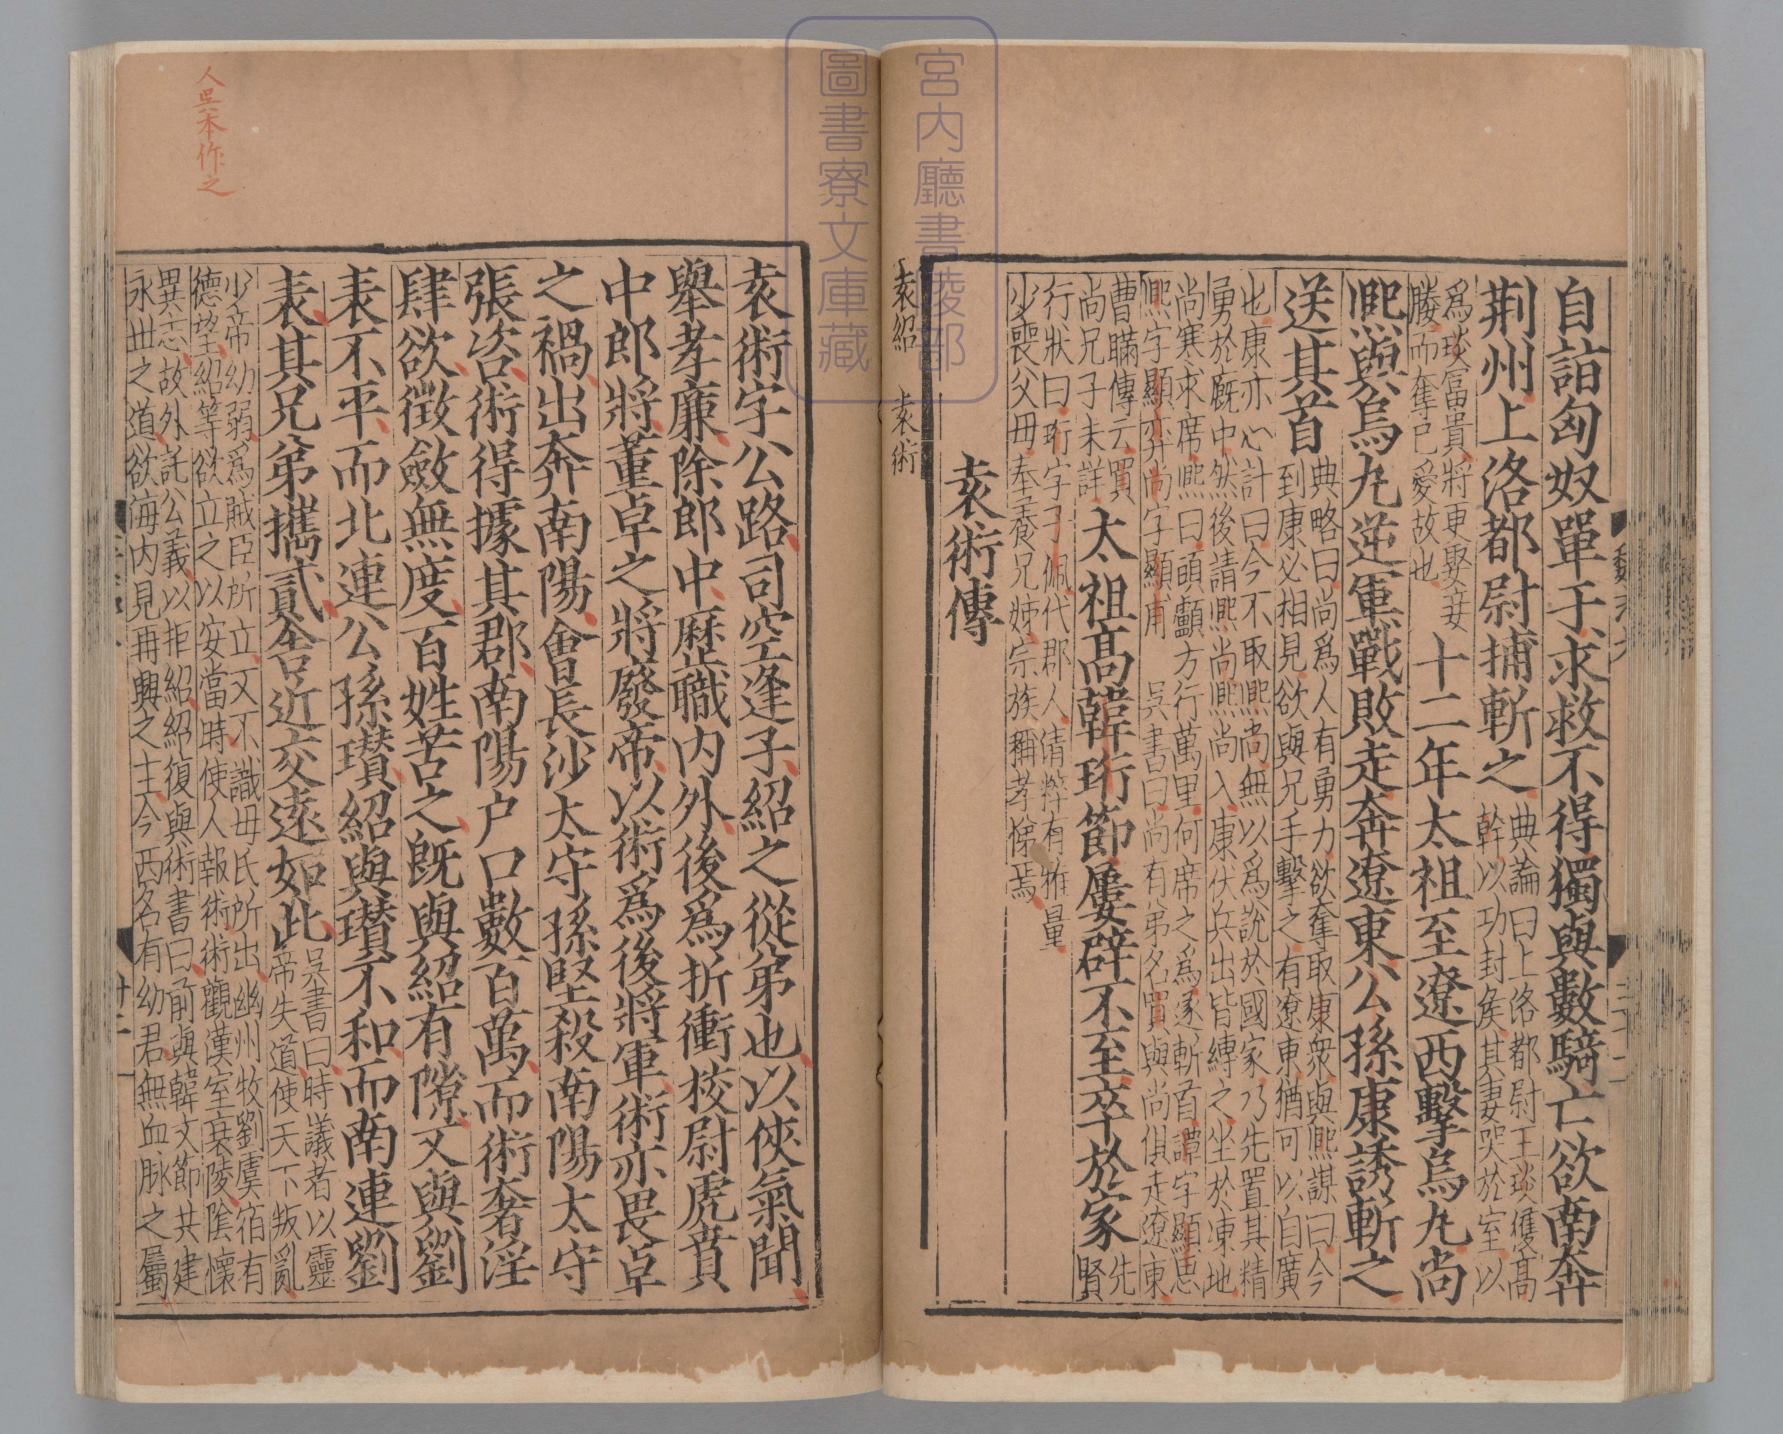 自詣匈奴單于求救不得獨與數騎亡欲南奔
荆州上洛都尉捕斬之
典論曰上洛都尉王琰獲高
幹以功封矦其妻哭於室以
爲琰富貴將更娶妾
媵而奪己愛故也
十二年太祖至遼西擊烏丸尚
熈與烏丸逆軍戰敗走奔遼東公孫康誘斬之
送其首
典略曰尚爲人有勇力欲奪取康衆與熈謀曰今
到康必相見欲與兄手擊之有遼東猶可以自廣
也康亦心計曰今不取熈尚無以爲說於國家乃先置其精
勇於廐中然後請熈尚熈尚入康伏兵出皆縛之坐於凍地
尚寒求席熈曰頭顱方行萬里何席之爲遂斬首譚字顯思
熈字顯弈尚字顯甫
吳書曰尚有弟名買與尚俱走遼東
曹瞞傳云買
尚兄子未詳
太祖高韓珩節屢辟不至卒於家
先
賢
行狀曰珩字子佩代郡人清粹有雅量
少喪父母奉養兄姊宗族稱孝悌焉
袁術傳
袁紹 袁術
袁術字公路司空逢子紹之從弟也以俠氣聞
舉孝廉除郎中歷職内外後爲折衝校尉虎賁
中郎將董卓之將廢帝以術爲後將軍術亦畏卓
之禍出奔南陽會長沙太守孫堅殺南陽太守
張咨術得據其郡南陽户口數百萬而術奢淫
肆欲徵斂無度百姓苦之既與紹有隙又與劉
表不平而北連公孫瓚紹與瓚不和而南連劉
表其兄弟攜貳舍近交遠如此
吳書曰時議者以靈
帝失道使天下叛亂
少帝幼弱爲賊臣所立又不識母氏所出幽州牧劉虞宿有
德望紹等欲立之以安當時使人報術術觀漢室衰陵陰懷
異志故外託公義以拒紹紹復與術書曰前與韓文節共建
永世之道欲海内見再興之主今西名有幼君無血脉之屬
人吳本作之
宮内廳書陵部
圖書寮文庫藏